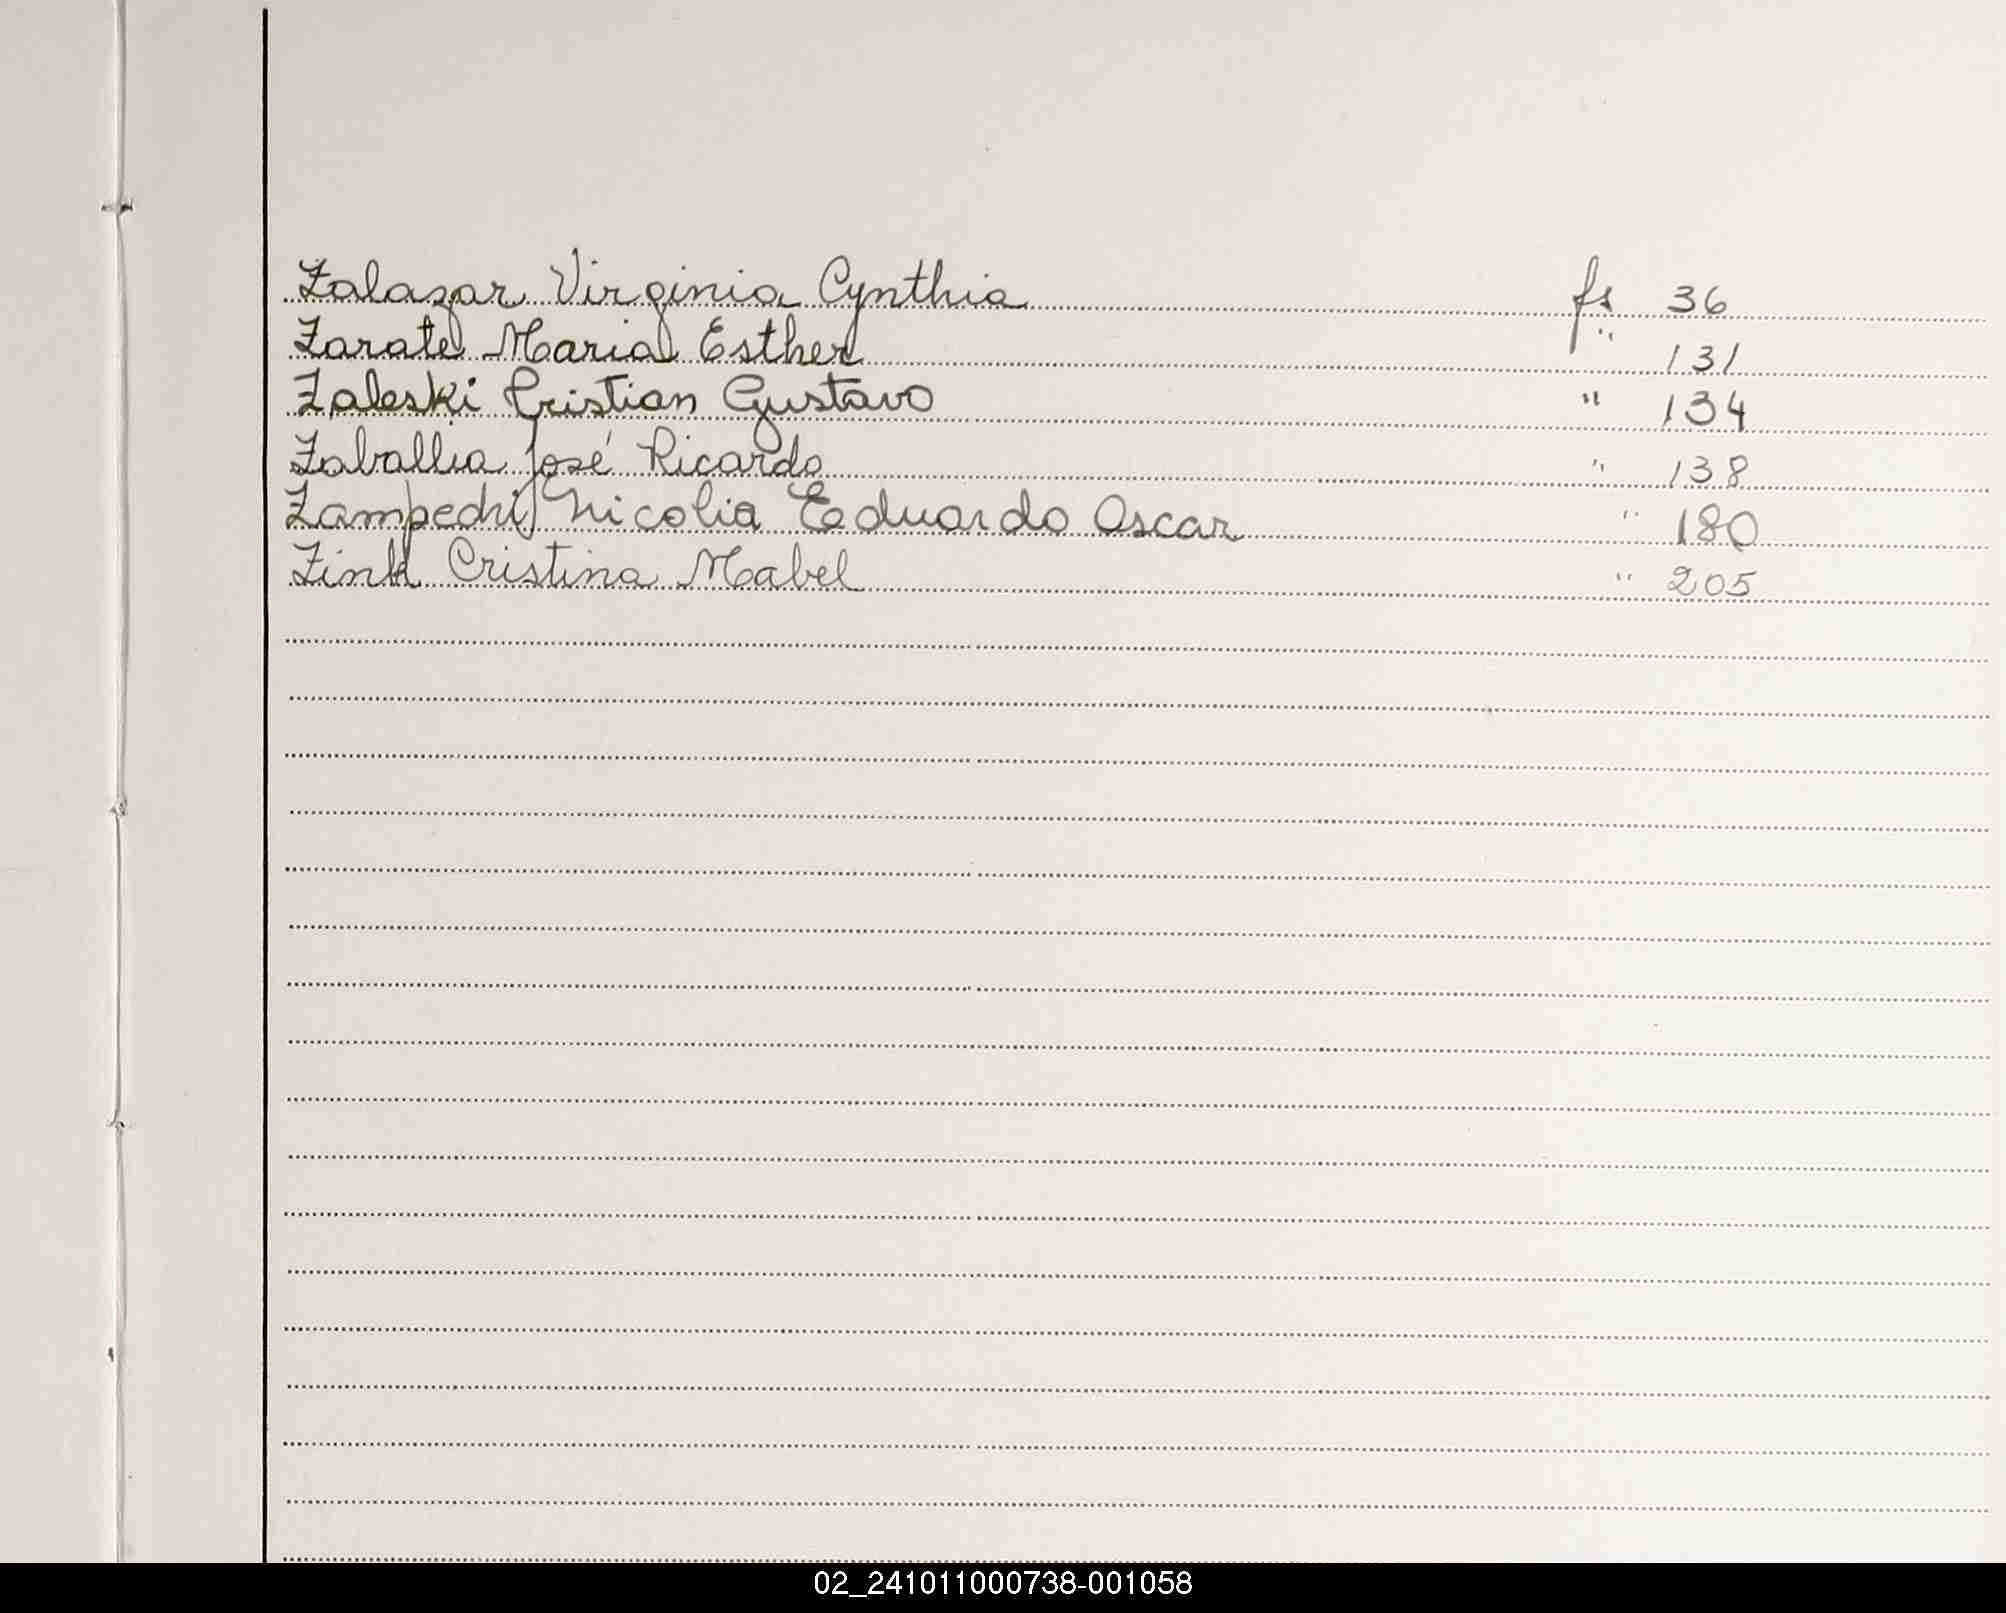 Zalazar Virginia Cynthia fs 36
Zarate Maria Esther " 131
Zaleski Cristian Gustavo " 134
Zaballia José Ricardo " 138
Zampedri Nicolia Eduardo Oscar " 180
Zink Cristina Mabel " 205
02_241011000738-001058